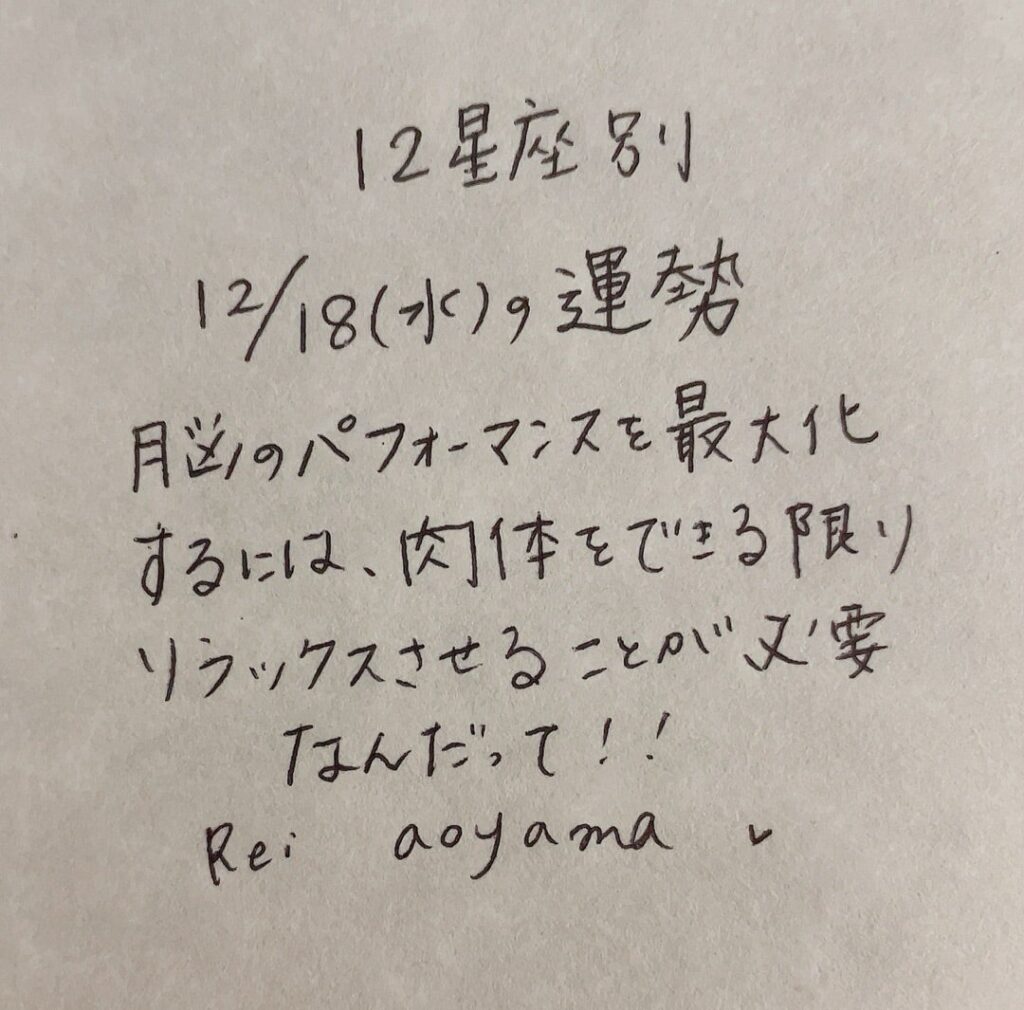 12星座別
12/18(水)の運勢
脳のパフォーマンスを最大化
するには、肉体をできる限り
リラックスさせることが必要
なんだって!!
Rei aoyama